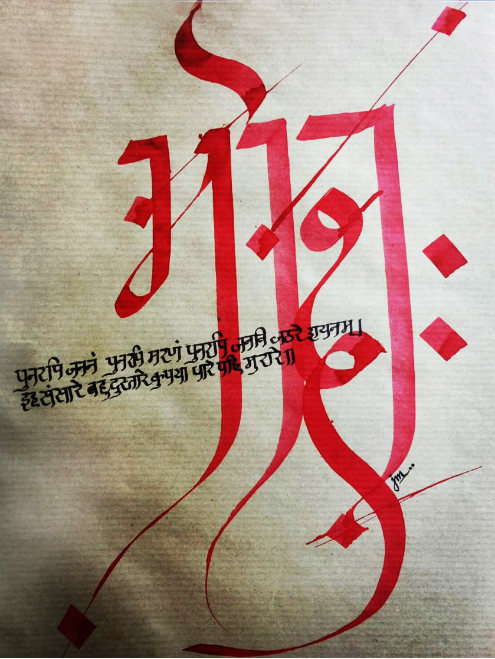 मोक्षः
पुनरपि जननं पुनरपि मरणं पुनरपि जननी जठरे शयनम्।
इह संसारे बहु दुस्तारे कृपया पारे पाहि मुरारे॥
jm..